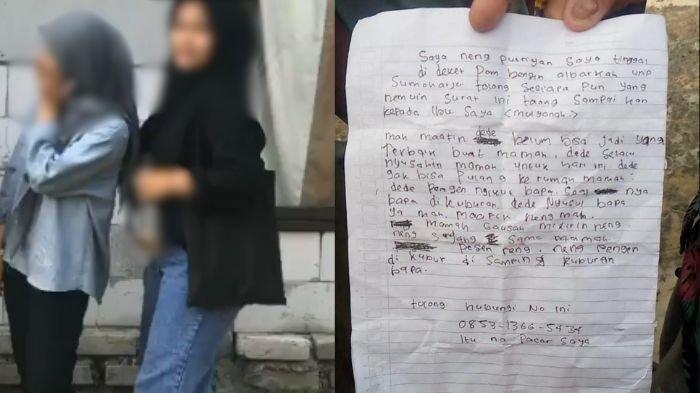 Saya neng putriyan Saya tinggal
di deket Pom bengin albarkah
Sumoharjo tolong Seciapa Pun yang
nemuin Surat Ini tolong Sampai kan
kepada Ibu Saya <muryanah>
mah maafin dede belum bisa jadi yang
Terbaik buat mamah, dede Selalu
nyusahin mamah, untuk hari ini dede
gak bisa Pulang ke rumah mamah,
dede Pengen ngikut bapa, nya
bapa di kuburan dede Nyusul bapa
ya mah, maafin neng mah,
mamah Gausah mikirin neng
neng Sayang Sama mamah
pesen neng, neng Pengen
di kubur di Samping kuburan
bapa.
tolong hubungi No Ini
0853-1366-5434
Itu no Pacar Saya